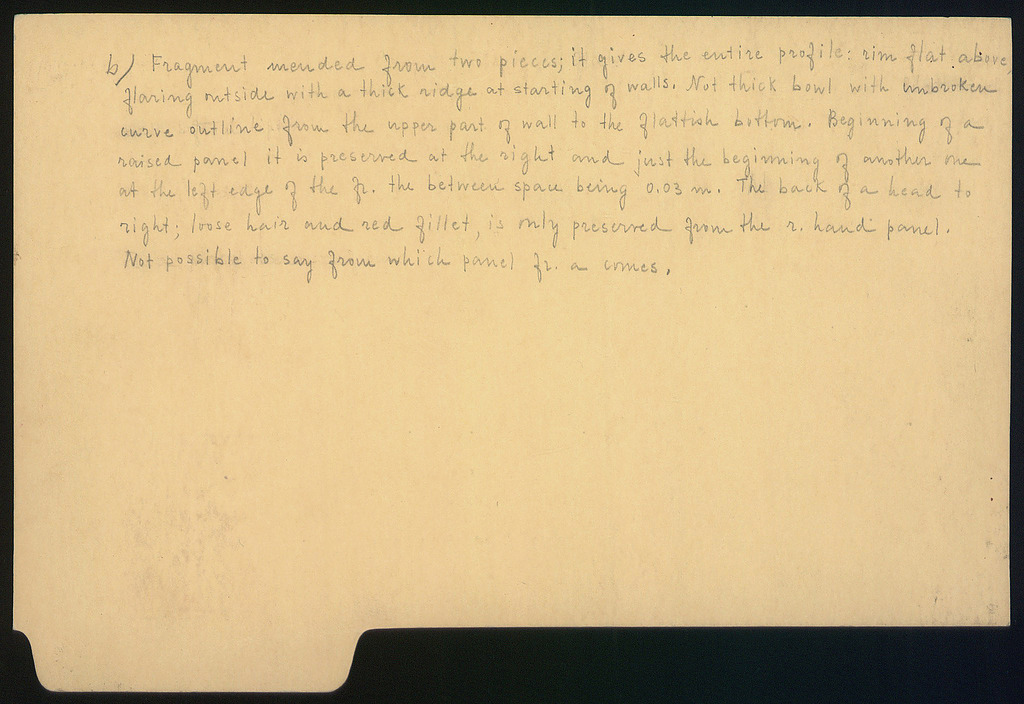 b) Fragment mended from two pieces; it gives the entire profile: rim flat above,
flaring outside with a thick ridge at starting of walls. Not thick bowl with unbroken
curve outline from the upper part of wall to the flattish bottom. Beginning of a
raised panel it is preserved at the right and just the beginning of another one
at the left edge of the fr. the between space being 0.03 m. The back of a head to
right; loose hair and red fillet, is only preserved from the r. hand panel.
Not possible to say from which panel fr. a comes.